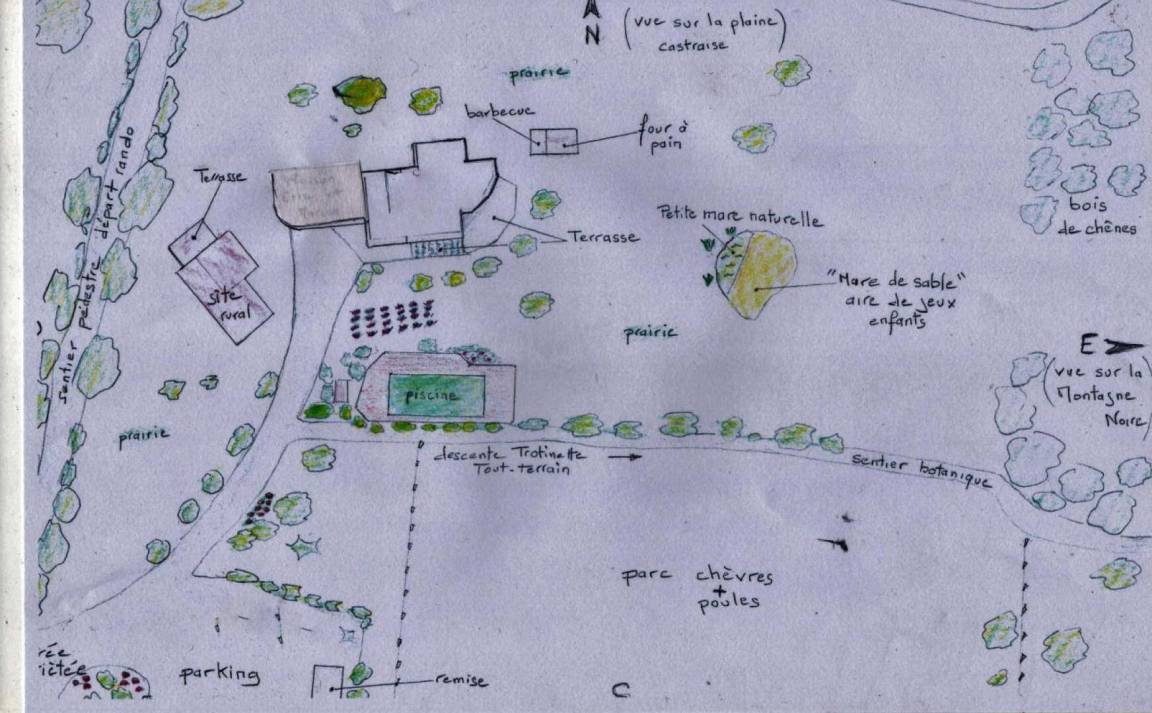 N
(vue sur la plaine
castraise)
prairie
barbecue
four à
pain
Terrasse
sentier pédestre départ rando
site
rural
Terrasse
Petite mare naturelle
bois
de chênes
"Mare de sable"
aire de jeux
enfants
prairie
E
(vue sur la
Montagne
Noire)
piscine
prairie
descente Trotinette
Tout-terrain
sentier botanique
parc chèvres
+
poules
parking
remise